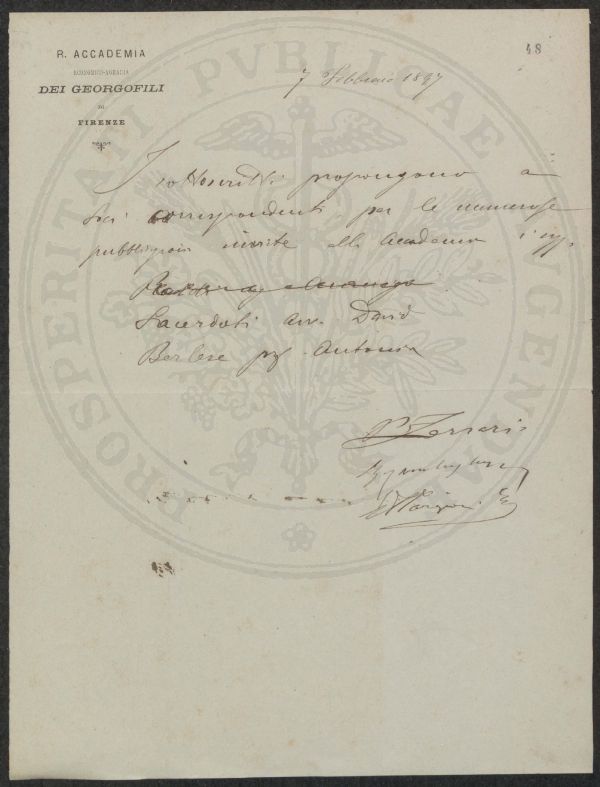 48
R. ACCADEMIA
ECONOMICO-AGRARIA
DEI GEORGOFILI
DI
FIRENZE
7 Febbraio 1897
I sottoscritti propongono a
soci corrispondenti per le numerose
pubblicazioni inviate alla Accademia i sigg.
Sacerdoti avv. David
Berlese prof. Antonio
PROSPERITATI PVBLICAE AVGENDAE